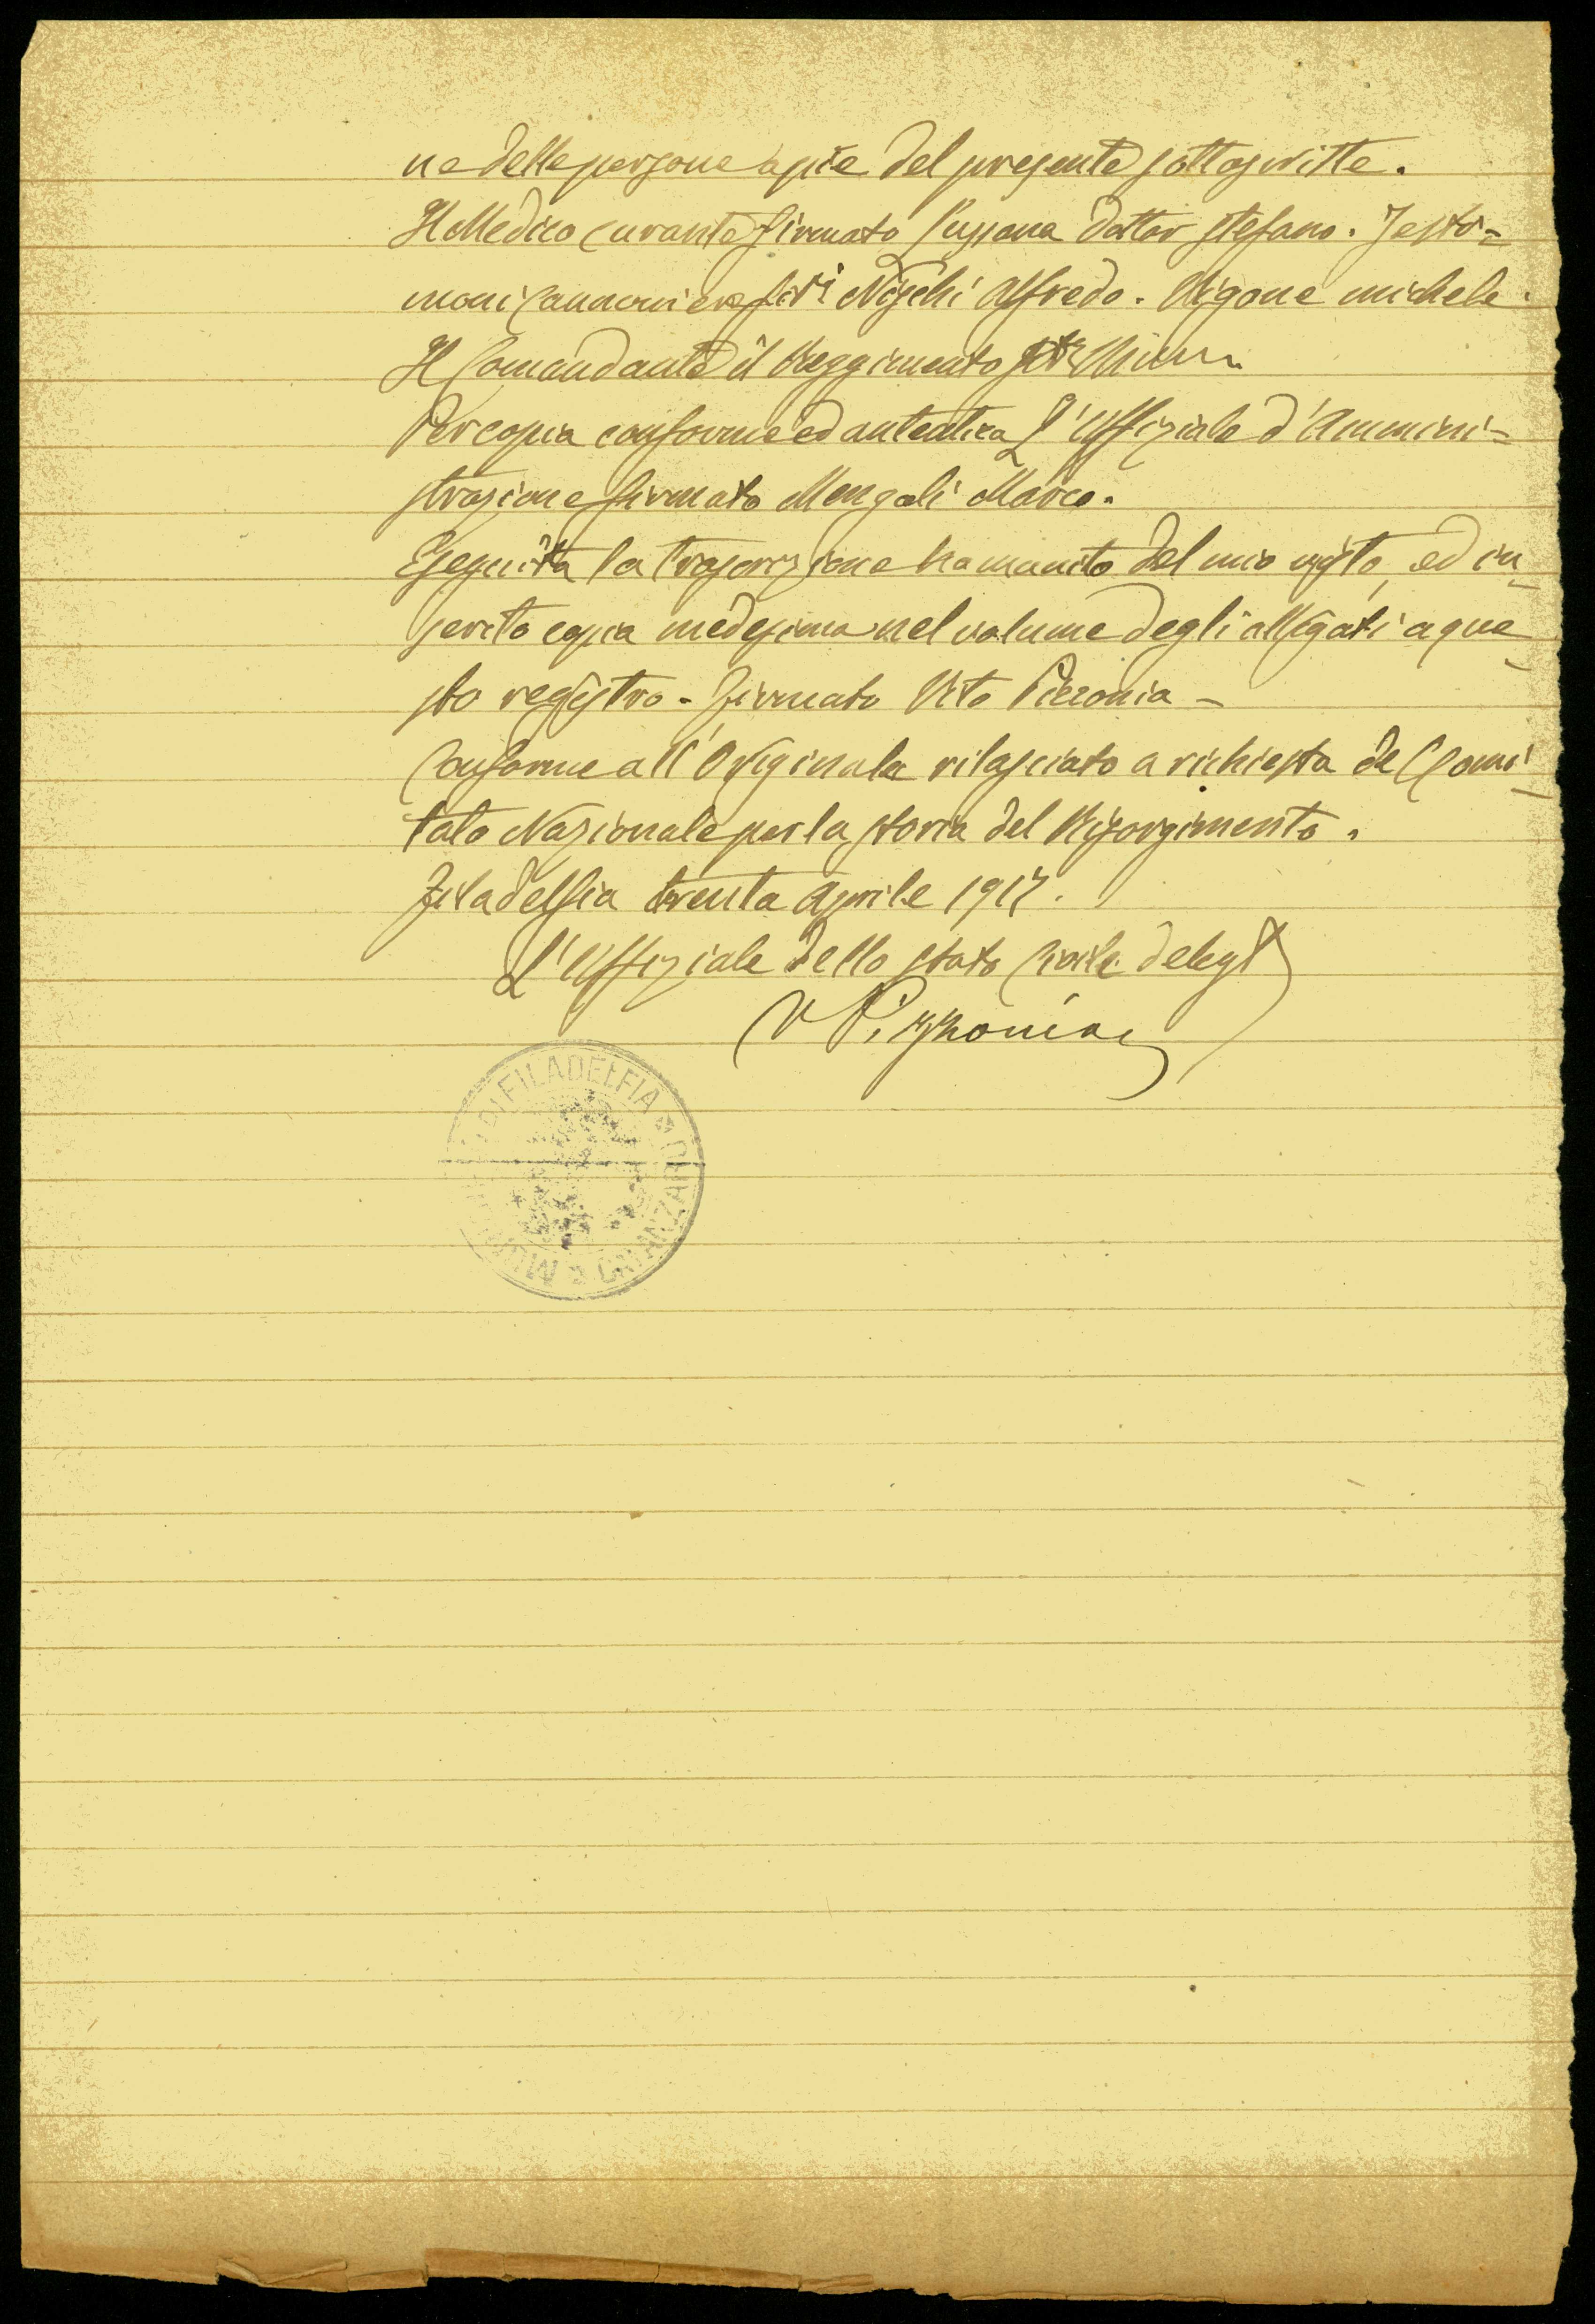 ne delle persone a piè del presente sottoscritte.
Il Medico curante firmato Sussana Dottor Stefano. Testi=
moni Cannoniere fir.ti Nischi Alfredo. Rigone michele.
Il Comandante il Reggimento
Per copia conforme ed autentica L'Uffiziale d'Ammini=
strazione firmato Mengoli Marco.
Eseguita la trascrizione ho munito del mio visto, ed in_
serito copia medesima nel volume degli allegati a que_
sto registro - firmato Vito Pizzonia -
Conforme all'Originale rilasciato a richiesta del Comi_
tato Nazionale per la storia del Risorgimento.
Filadelfia trenta Aprile 1917.
L'Uffiziale dello stato Civile deleg.to
V Pizzonia
DI FILADELFIA * CATANZARO